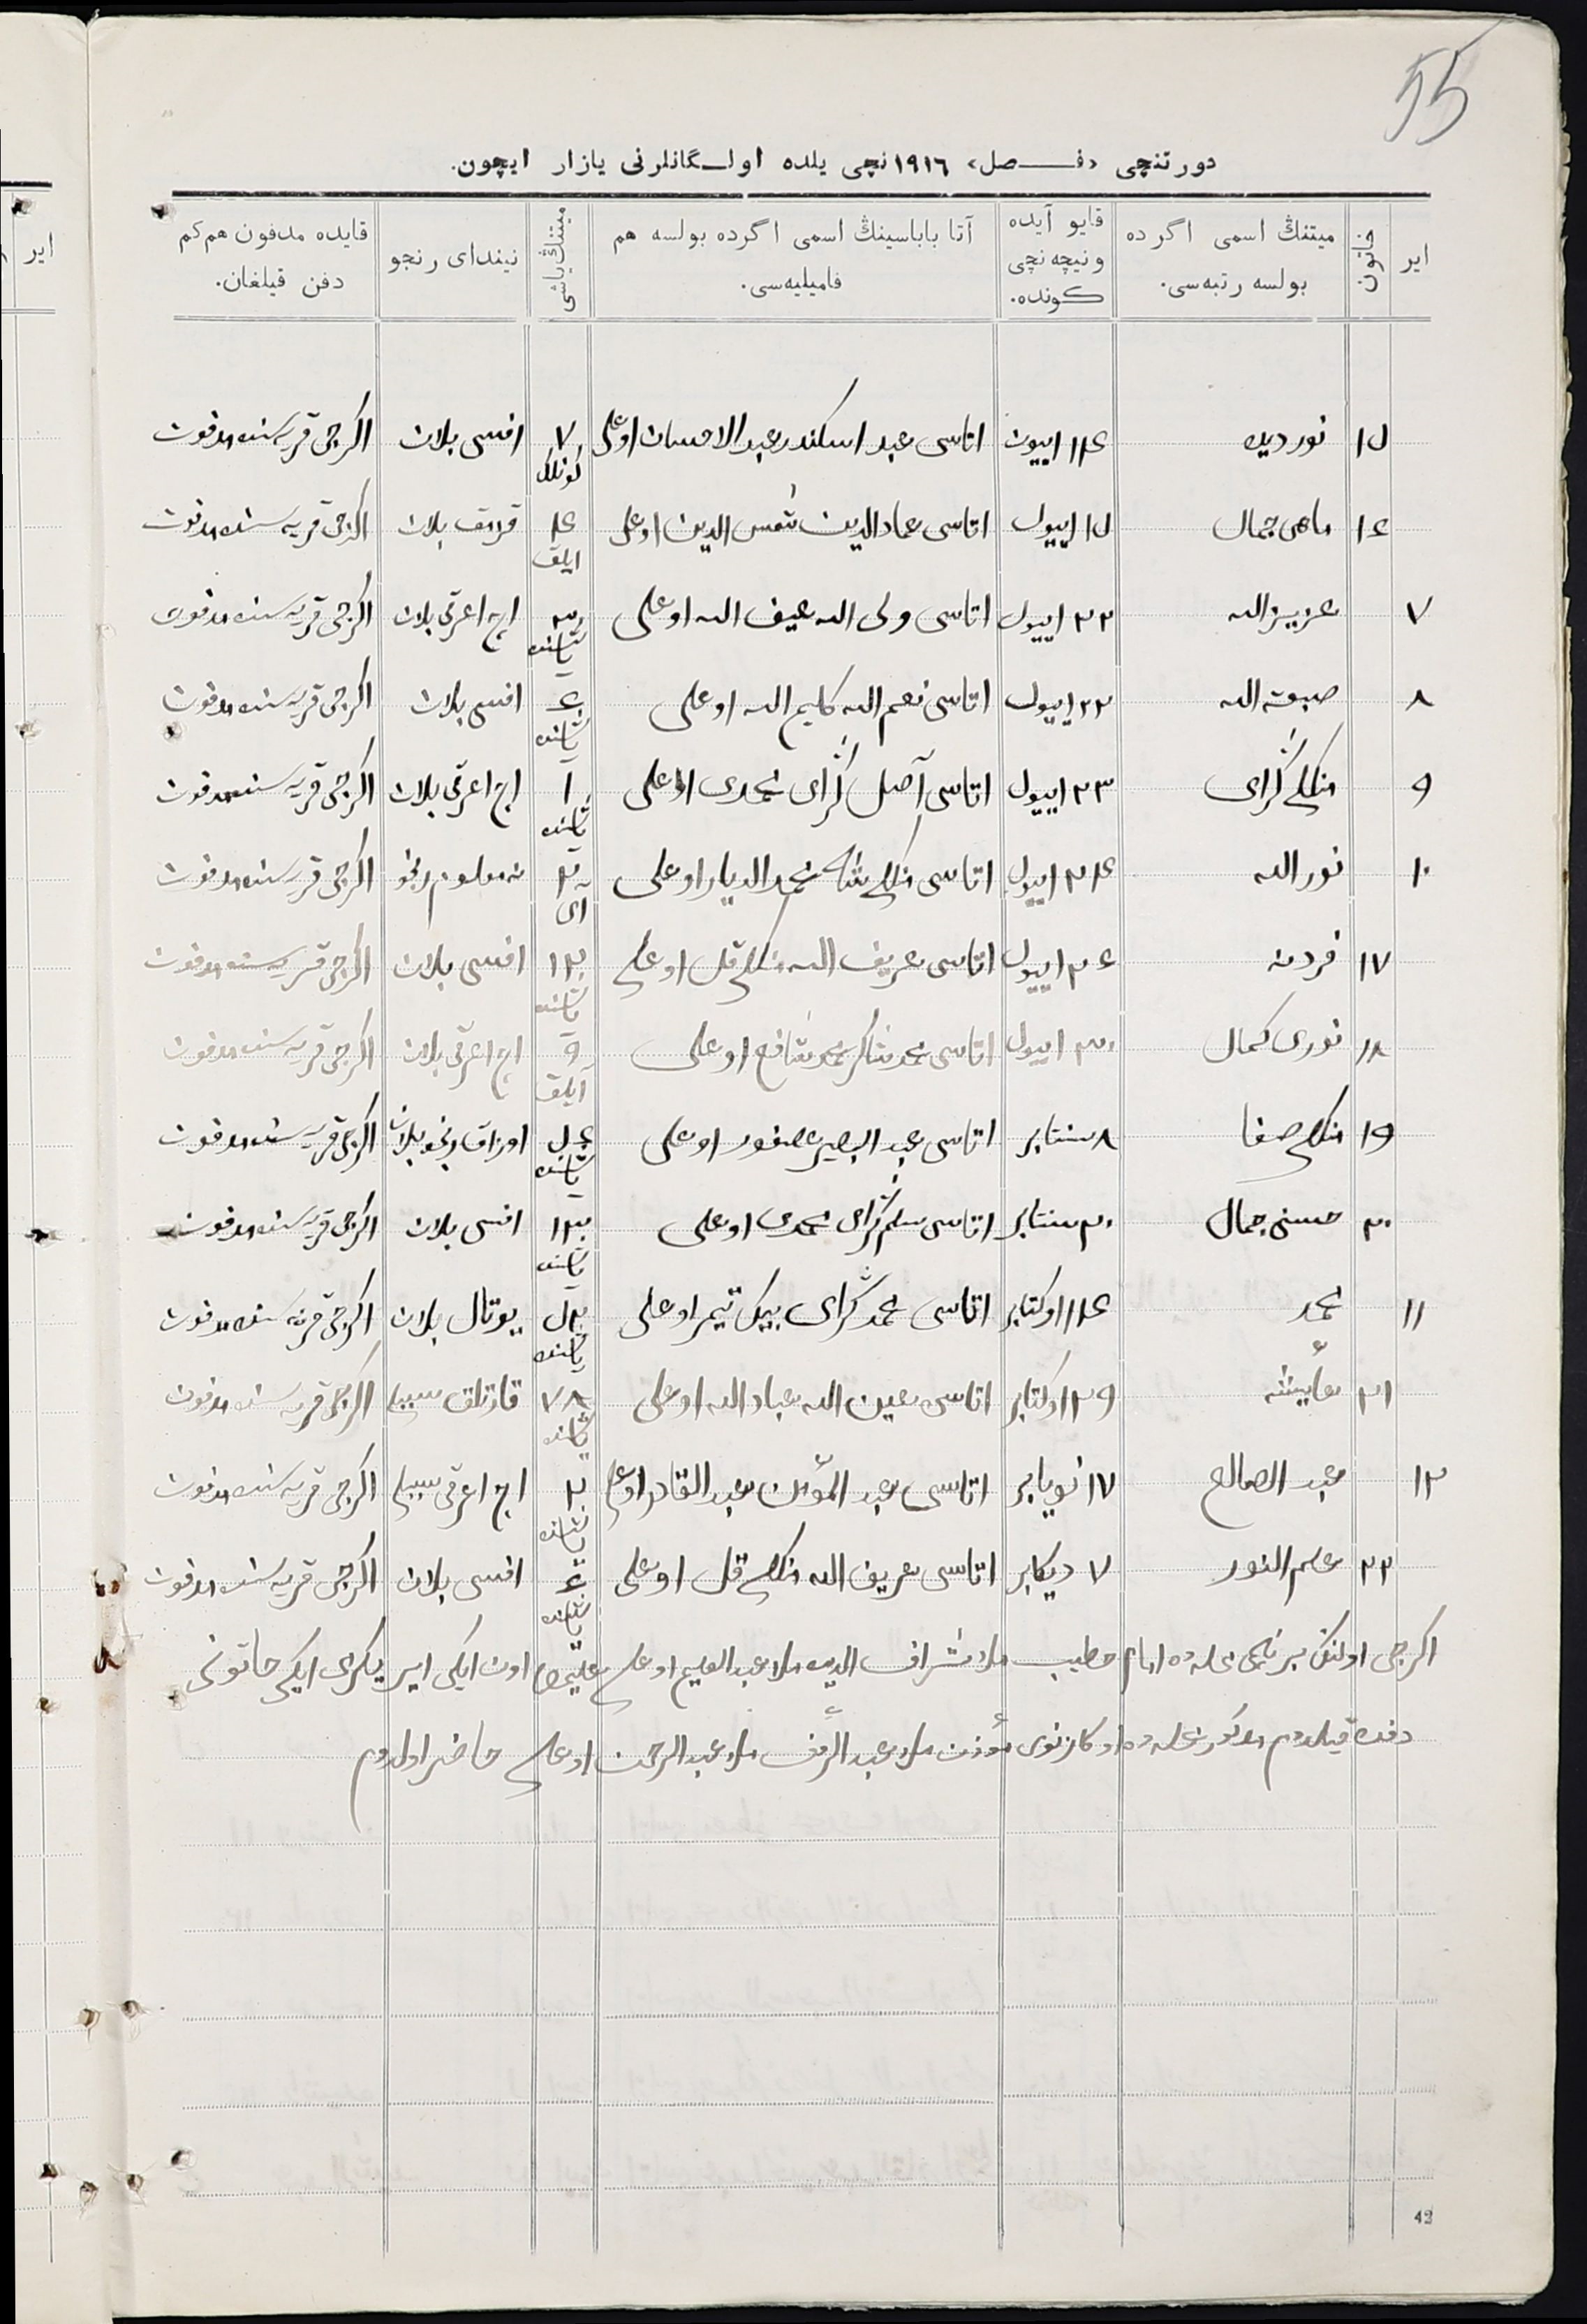 55
دورتنچی «فصل» ١٩١٦ نچی یلده اولـگانلرنی یازار ایچون.
ایر
خاتون
میتنڭ اسمی اگرده بولسه رتبه‌سی.
قایو آیده ونیچه نچی كونده.
آتا باباسینڭ اسمی اگرده بولسه هم فامیلیه‌سی.
میتنڭ یاشی
نیندای رنجو
قایده مدفون هم كم دفن قیلغان.
١٥ نور دیده ١٤ اییون اتاسی عبد اسكندر عبد الاحسان اوغلی ٧ كونلك افسی بلان اكرجی قریه سنده مدفون
١٦ ماهی جمال ١٥ اییول اتاسی عماد الدین شمس الدین اوغلی ایلق بلان اكرجی قریه سنده مدفون
٧ عزیز الله ٢٢ اییول اتاسی ولی الله اوغلی یاشنده اچ اغرقی بلان اكرجی قریه سنده مدفون
٨ صبغة الله ٢٢ اییول اتاسی نعم الله كلیم الله اوغلی یاشنده افسی بلان اكرجی قریه سنده مدفون
٩ منكلی گرای ٢٣ اییول اتاسی آصل گرای محمدی اوغلی ١ یاشنده اچ اغرقی بلان اكرجی قریه سنده مدفون
١٠ نور الله ٢٤ اییول اتاسی منكلی شاه محمد الدیار اوغلی ٢ ای نه معلوم رنجو اكرجی قریه سنده مدفون
١٧ ٢٦ اییول اتاسی عریف الله منكلی قل اوغلی ١٢ یاشنده افسی بلان اكرجی قریه سنده مدفون
١٨ نوری كمال ٣٠ اییول اتاسی محمد شاكر محمد شافع اوغلی ٩ آیلق اچ اغرقی بلان اكرجی قریه سنده مدفون
١٩ منكلی صفا ٨ سنتابر اتاسی عبد البصیر عصفور اوغلی یاشنده اوزاق رنجو بلان اكرجی قریه سنده مدفون
٢٠ حسنی جمال ٢٠ سنتابر اتاسی سلم گرای محمدی اوغلی ١٢ یاشنده افسی بلان اكرجی قریه سنده مدفون
١١ محمد ١٤ اوكتابر اتاسی محمد گرای بیك تیمر اوغلی یاشنده یوتال بلان اكرجی قریه سنده مدفون
٢١ عایشه ٢٩ اوكتابر اتاسی معین الله عباد الله اوغلی ٧٨ یاشنده قارتلق سببلی اكرجی قریه سنده مدفون
١٢ عبد الصالح ١٧ نویابر اتاسی عبد المؤمن عبد القادر اوغلی ٢ یاشنده اچ اغرقی سببلی اكرجی قریه سنده مدفون
٢٢ علم النور ٧ دیكابر اتاسی عریف الله منكلی قل اوغلی یاشنده افسی بلان اكرجی قریه سنده مدفون
اكرجی اولنڭ برنچی محله ده امام خطیب ملا شراف الدین ملا عبد العلیم اوغلی علیمف اون ایكی ایر یكرمی ایكی خاتوننی
دفنده قیلدوم مذكور محله ده مؤذن ملا عبد الرؤف ملا عبد الرحمن اوغلی حاضر اولدوم
42